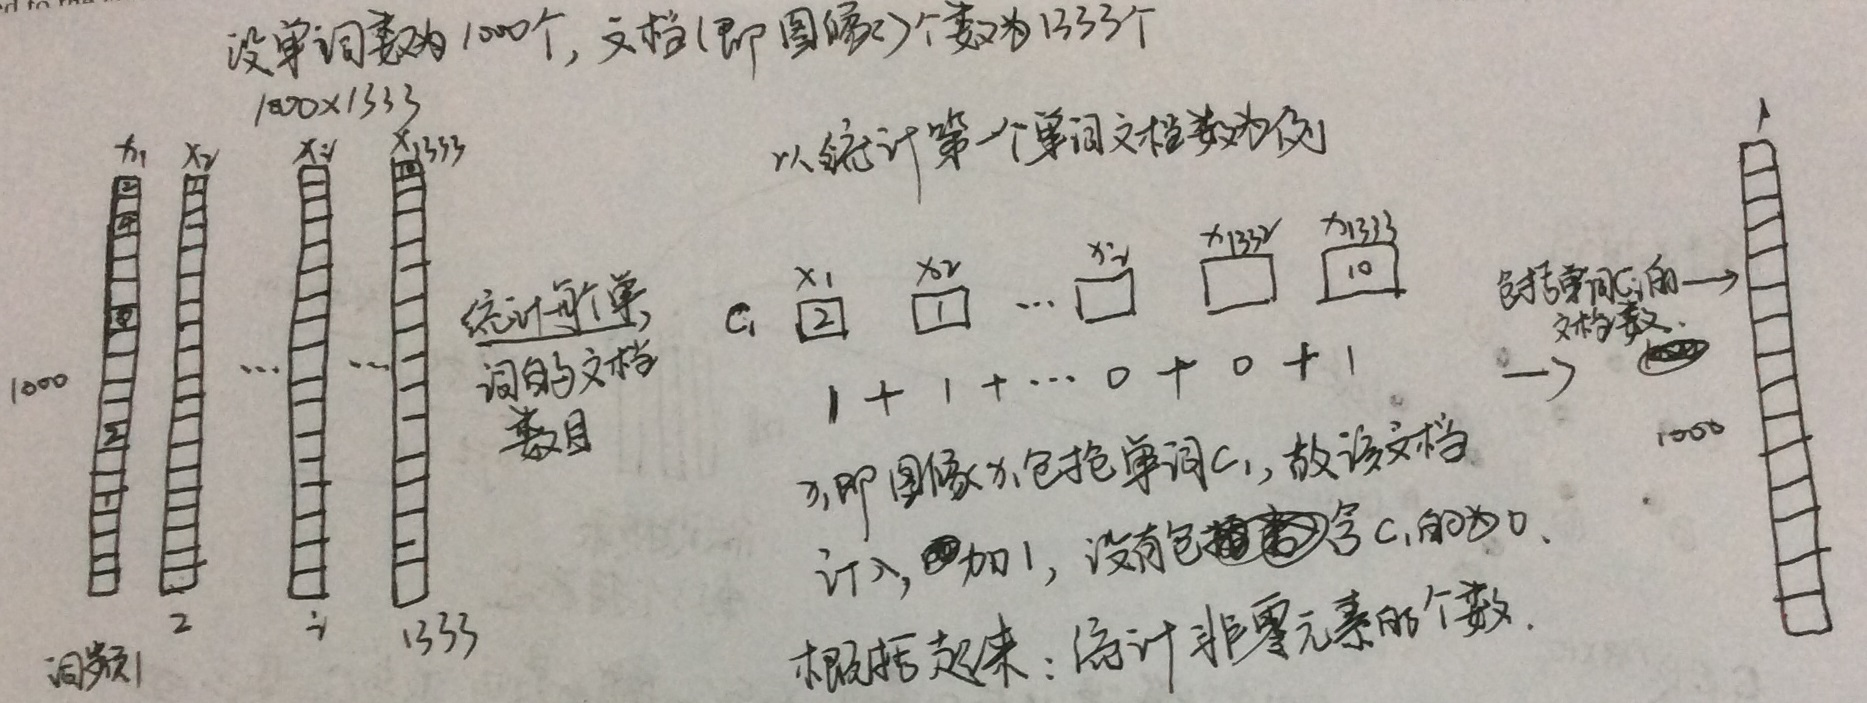 设单词数为1000个，文档(即图像)个数为1333个
1000×1333
x1 x2 xi x1333
以统计第一个单词文档数为例
1
x1 x2 xi x1332 x1333
C1 2 1 … 10
统计每个单
词的文档
数目
包括单词Ci的→
文档数.
1000
… …
1 + 1 + … 0 + 0 + 1 →
1000
x1即图像x1包括单词C1，故该文档
计入，加1，没有包含C1的为0.
概括起来：统计非零元素的个数.
词频1 2 i 1333